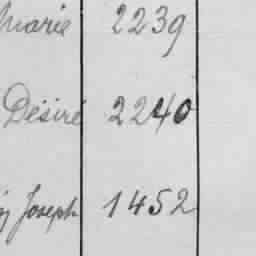 Marie 2239
Désiré 2240
Joseph 1452